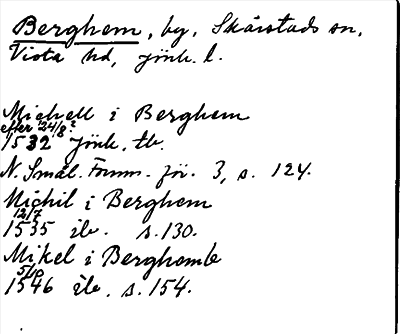 Berghem, by, Skärstads sn,
Vista hd, Jönk. l.
Michell i Berghem
efter 24/8?
1532 Jönk. tb.
N. Smål. Fornm. för. 3, s. 124.
Michil i Berghem
12/7
1535 ib. s. 130.
Mikel i Berghemb
5/10
1546 ib. s. 154.